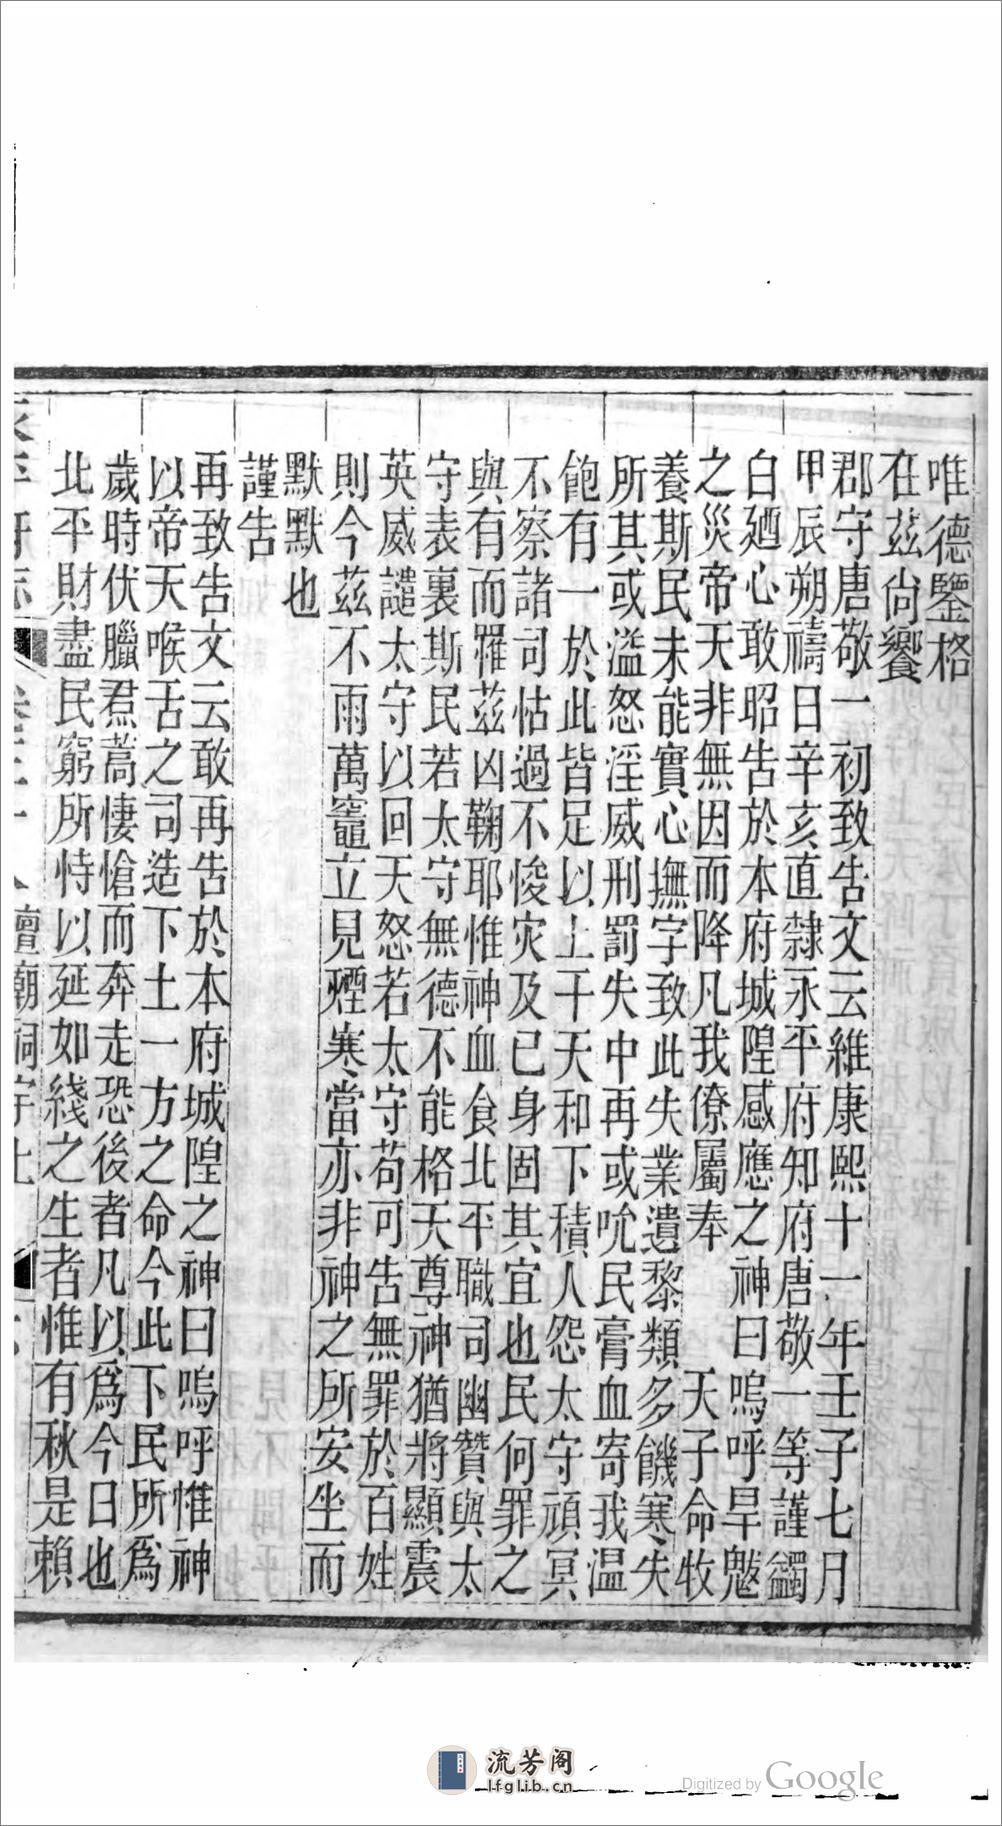 唯德鑒格
在茲尙饗
郡守唐敬一初致告文云維康熙十一年壬子七月
甲辰朔禱日辛亥直隸永平府知府唐敬一等謹蠲
白廼心敢昭告於本府城隍感應之神曰嗚呼旱魃
之災帝天非無因而降凡我僚屬奉 天子命牧
養斯民未能實心撫字致此失業遺黎類多饑寒失
所其或溢怒淫威刑罰失中再或吮民膏血寄我温
飽有一於此皆足以上干天和下積人怨太守頑冥
不察諸司怙過不悛灾及已身固其宜也民何罪之
與有而罹茲凶鞠耶惟神血食北平職司幽贊與太
守表裏斯民若太守無德不能格天尊神猶將顯震
英威譴太守以回天怒若太守苟可告無罪於百姓
則今茲不雨萬竈立見煙寒當亦非神之所安坐而
默默也
謹告
再致告文云敢再告於本府城隍之神曰嗚呼惟神
以帝天喉舌之司造下土一方之命今此下民所爲
歲時伏臘焄蒿悽愴而奔走恐後者凡以爲今日也
北平財盡民窮所恃以延如綫之生者惟有秋是賴
永平府志 卷三十八 壇廟祠宇上
流芳阁
lfglib.cn
Digitized by Google